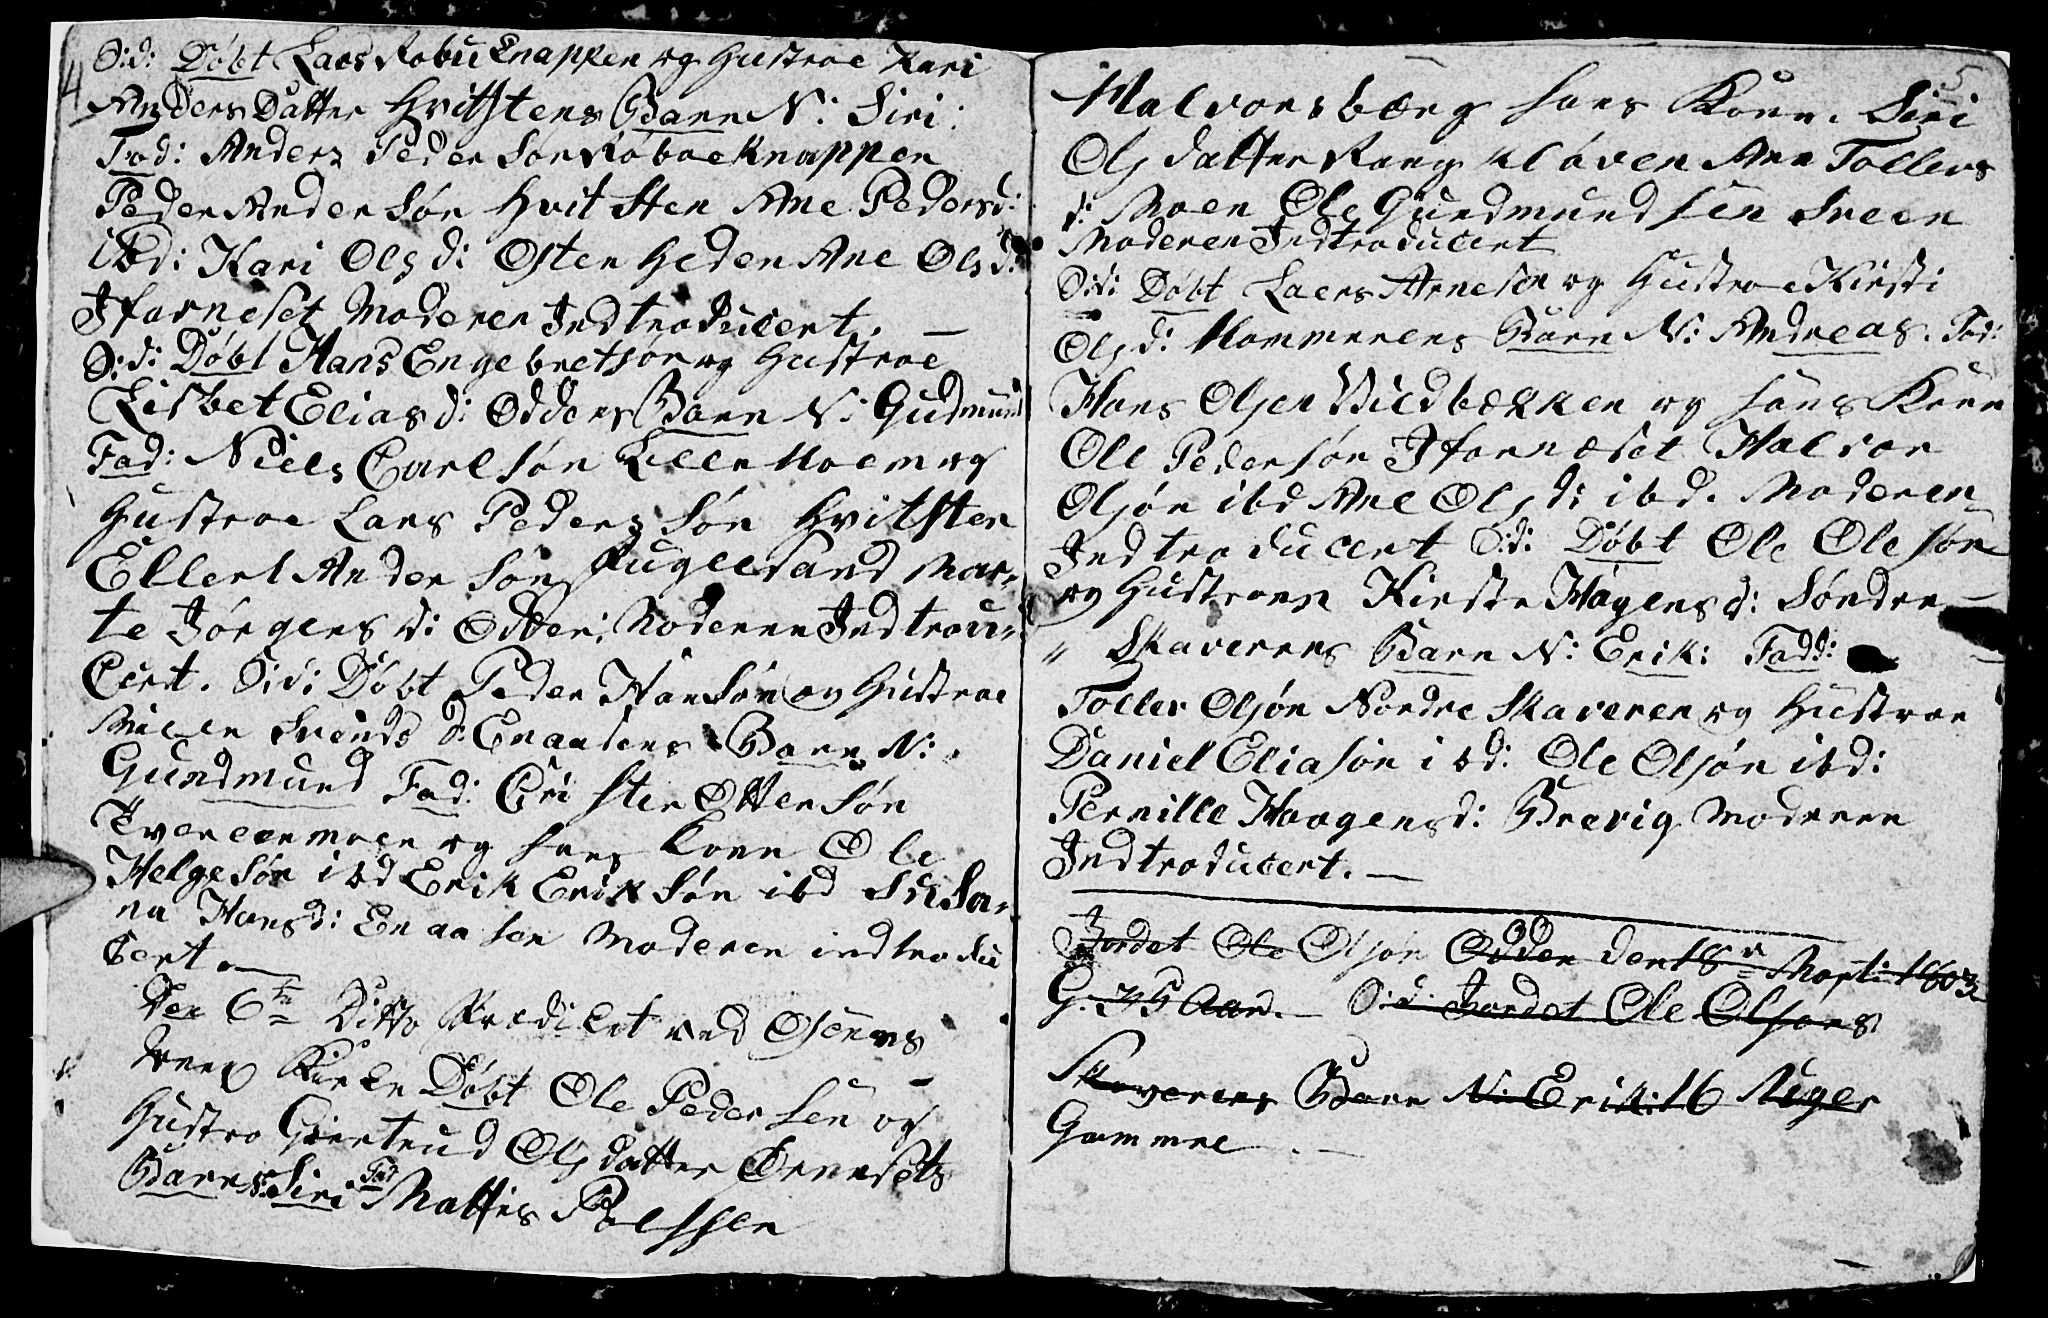 4
S: d: Døbt Lars Robu Knappen og Hustroe Kari
Anders Datter Hvitstens Barn N: Siri:
Fad: Anders Peder Søn Røboe Knappen
Peder Ander Søn Hvit Sten Ane Peders d:
ibd: Kari Ols d: Østen Heden Ane Ols d:
Ifarneset Moderen Indtroducert. —
S: d: Døbt Hans Engebretsøn og Hustroe
Lisbet Elias d: Odders Barn N: Gudmund
Fad: Niels Carl Søn Moem og
Hustroe Lars Peders Søn Hvitsten
Ellert Ander Søn Fugelsand Mar-
te Jørgens d: Odden: Moderen Indtrodu-
Cert. S: d: Døbt Peder Han Søn og Hustroe
Svends d: Enaasens Barn N:
Gundmund Fad: Cri Sten Otter Søn
Tverenmoen og hans Kone Ole
Helge Søn ibd Erik Erik Søn ibd Susa-
na Hans d: Enaa sen Moderen indtrodu
Cert —
Den 6te Ditto Prædiket ved Osens
Kirke Døbt Ole Peder Sen og
Hustro Giertrud Ols datter Ørnesets
Barn N: Siri Fad Mattis Poelssen
5
Halvorsbærg hans Kone. Siri
Ols datter Kløven Ane Tollevs
d: Moen Ole Gundmund sen Sveen
Moderen Indtroducert
S: d: Døbt Laers Arnesen og Hustroe Kirsti
Ols d: Hammerens Barn N: Andreas. Fad:
Hans Olsen Viedbekken og hans Kone
Ole Peder søn Ifarneset Halvor
Olsøn ibd Ane Ols d: ibd. Moderen
Indtroducert S: d: Døbt Ole Ole søn
og Hustroen Kirste Hagens d: Søndre —
" Skaverens Barn N: Erik: Fadd:
Tollev Olsøn Nordre Skaveren og Hustroe
Daniel Elia søn ibd: Ole Olsøn ibd:
Pernille Haagens d: Brevig Moderen
Indtroducert. —
Jordet Ole Olsøn Odden den 18de Marti 1803
G: 35 Aar. — S: d: Jordet Ole Olsøns
Skaverens Barn N: Erik: 16 Uger
Gammel . —